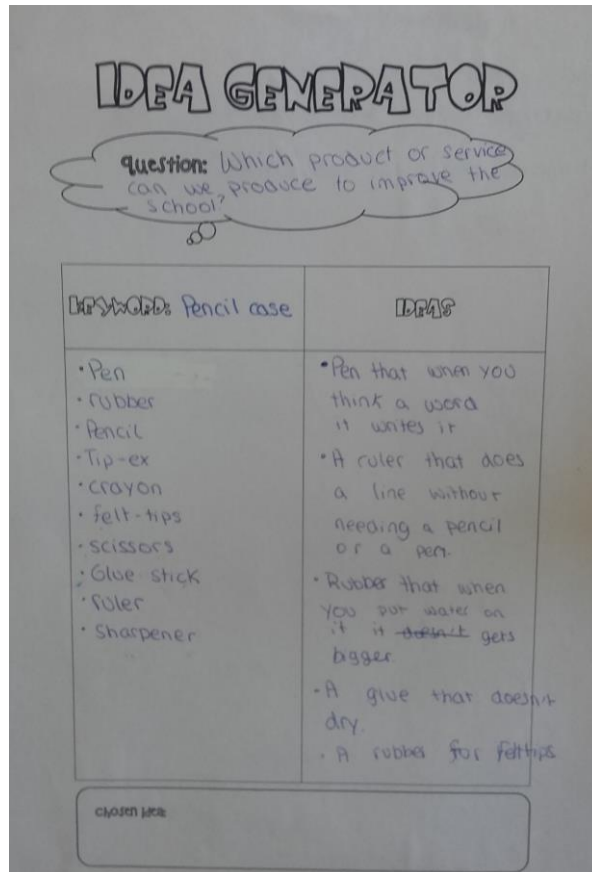 IDEA GENERATOR
Question: Which product or service
can we produce to improve the
school?
KEYWORD: Pencil case
IDEAS
• Pen
• rubber
• Pencil
• Tip-ex
• crayon
• felt-tips
• scissors
• Glue stick
• ruler
• Sharpener
• Pen that when you
think a word
it writes it
• A ruler that does
a line without
needing a pencil
or a pen.
• Rubber that when
you put water on
it it doesn't gets
bigger.
• A glue that doesn't
dry.
• A rubber for felttips
CHOSEN IDEA: